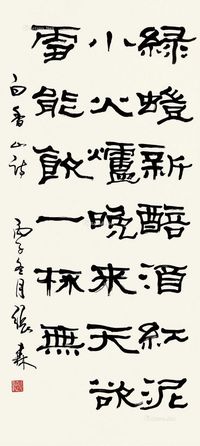 綠螘新醅酒紅泥
小火爐晚來天欲
雪能飲一杯無
白香山詩 丙子冬月張森